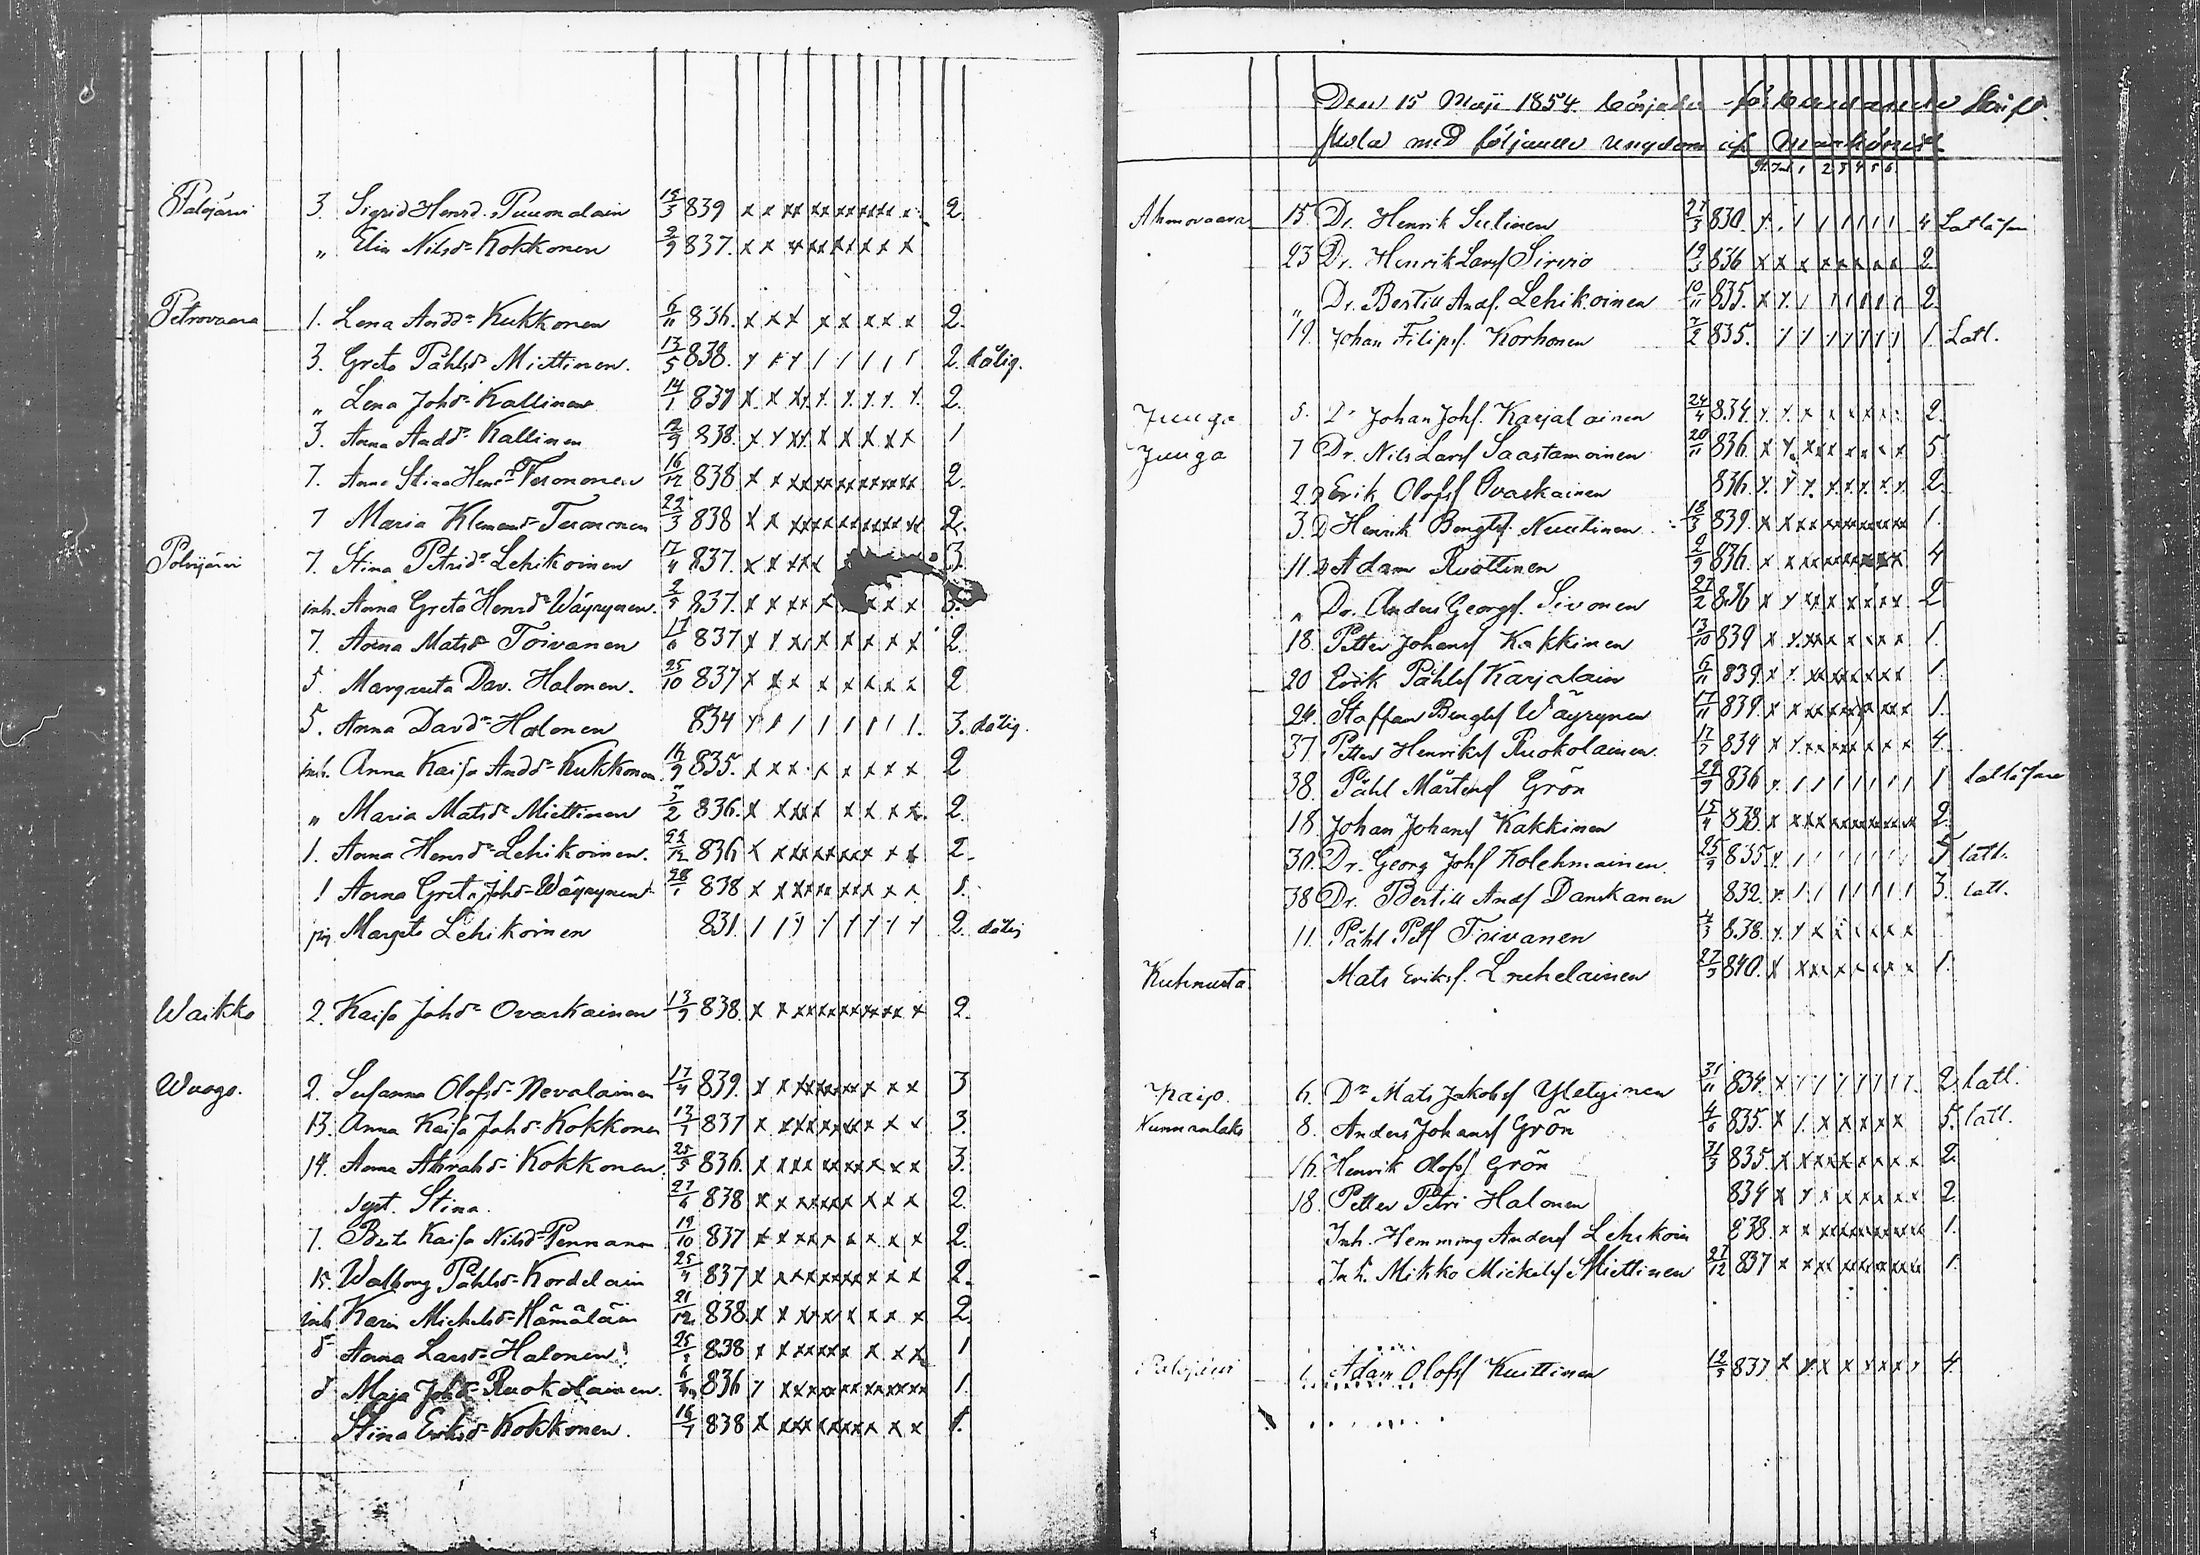 Palojärvi 3. Sigrid Henrd. Puumalain 15/3 839 x x xx xx x x x x x 2
„ Elin Nilsdr Kokkonen 2/9 837. x x x x x x x x x
Petrovaara 1. Lena Anddr Kukkonen 6/11 836. x x x x x x x x 2.
3. Greta Påhlsdr Miettinen. 13/5 838. 2. dålig.
„ Lena Johdr Kallinen 14/1 837 x x x x x x x x 2.
3. Anna Andd. Kallinen 12/9 838. x x x x x x x x x 1
7. Anna Stina Henrdr Teronen 16/12 838 x x x x x x x x x x 2.
7 Maria Klemensdr Teronen 22/3 838 x x x x x x x x x x 2.
Polvijärvi 7. Stina Petrid. Lehikoinen 17/4 837. x x x x 3
inh. Anna Greta Henrdr Wäyrynen. 2/5 837. x x x x x x x x 3.
7. Anna Matsdr Toivanen 17/6 837 x x x x x x x x 2
5. Margareta Dav. Halonen. 25/10 837 x x x x x x x x 2
5. Anna Davdr Halonen 834 3. dålig
inh. Anna Kaisa Andd. Kukkonen 16/9 835. x x x x x x x x 2
„ Maria Matsdr Miettinen 3/2 836. x x x x x x x x x 2.
1. Anna Henrdr Lehikoinen. 22/12 836 x x x x x x x x x 2.
1 Anna Greta Johdr Wäyrynen 28/1 838 x x x x x x x x x 1.
pig Margeta Lehikoinen 831. 2. dålig
Waikko 2. Kaisa Johdr Ovaskainen 13/9 838. x x x x x x x x x x 2.
Wuogo. 2. Susanna Olofsdr Nevalainen 17/4 839. x x x x x x x x x 3
13. Anna Kaisa Johdr Kokkonen 13/7 837 x x x x x x x x x 3.
14. Anna Abrahdr Kokkonen 25/5 836. x x x x x x x x x 3.
syst. Stina. 27/6 838 x x x x x x x x x 2.
7. Brita Kaisa Nilsdr Pennanen 19/10 837 x x x x x x x x x 2.
15. Walborg Påhlsdr Kordelain 25/4 837 x x x x x x x x x 2.
inh. Karin Michelsdr Hämäläin 21/12 838. x x x x x x x x x 2
8 Anna Larsdr Halonen 25/ 838 x x x x x x x x x 1
8 Maja Johdr Ruokolainen. 6/ 836 x x x x x x x x x x 1.
Stina Eriksdr Kokkonen. 16/7 838 x x x x x x x x x 1.
Den 15 Maji 1854 börjades förberedande Skrift.
skola med följande ungdom af Mankönet
1 2 3 4 5 6
Ahmovaara 15. Dr. Henrik Sutinen 27/3 830. 4 Latläsare
23 Dr. Henrik Larsf Sirviö 19/3 836 x x x x x x x x 2.
„ Dr. Bertill Andf. Lehikoinen 10/11 835. x x 2.
19. Johan Filipsf. Korhonen 7/2 835. 1. Latl.
Juuga 5. Dr Johan Johf. Karjalainen 24/4 834. x x x x x x x x 2.
Juuga 7 Dr. Nils Larsf Saastamoinen 20/11 836. x x x x x x x x x 5.
22 Erik Olofsf Ovaskainen 836. x x x x x x x x 2.
3. D Henrik Bengtsf. Nuutinen 18/3 839. x x x x x x x x x x 1.
11. D Adam Ruottinen 2/9 836. x x x x x x x x x 4
„ Dr. Anders Georgsf. Sivonen 27/2 836 x x x x x x x x x 2
18. Petter Johansf Kakkinen 13/10 839 x x x x x x x x 1.
20 Erik Påhlsf Karjalain 6/11 839 x x x x x x x x x 1.
24. Staffan Bengtsf Wäyrynen 17/11 839. x x x x x x x x x 1.
37. Petter Henriksf Ruokolainen. 17/7 834 x x x x x x x x x 4.
38. Påhl Mårtensf Grön 29/9 836 1 latläsare
18. Johan Johansf Kakkinen 15/4 838. x x x x x x x x x x 2.
30. Dr. Georg Johf Kolehmainen. 25/9 835 5 latl.
38 Dr. Bertill Andf Danskanen 832. 3. latl.
11. Påhl Petf Toivanen 4/3 838. x x x x x x x x
Kuhnusta Mats Eriksf. Lruhelainen 27/5 840. x x x x x x x x x 1.
Paijo. 6. Dr Mats Jakobsf Yletyinen 31/11 834. 2. latl.
Nunnanlaks 8. Anders Johansf Grön 4/6 835. x x x x x x x 5. latl.
16. Henrik Olofsf. Grön 21/3 835. x x x x x x x x x 2.
18. Petter Petri Halonen 834 x x x x x x x x 2.
Inh. Hemming Andersf Lehikoin 838. x x x x x x x x x x 1.
Inh. Mikko Mickelsf Miettinen 27/12 837 x x x x x x x x x x 1.
Palojärvi 1. Adam Olofsf Kuittinen 19/5 837 x x x x x x x x 4.